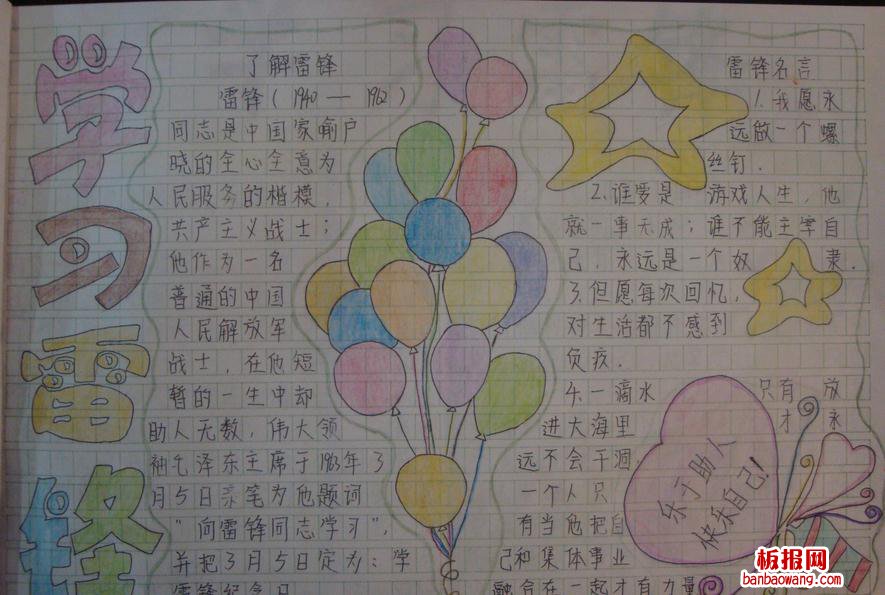 学习雷锋
了解雷锋
雷锋(1940 — 1962)
同志是中国家喻户
晓的全心全意为
人民服务的楷模,
共产主义战士;
他作为一名
普通的中国
人民解放军
战士,在他短
暂的一生中却
助人无数,伟大领
袖毛泽东主席于1963年3
月5日亲笔为他题词
"向雷锋同志学习",
并把3月5日定为:学
雷锋纪念日
雷锋名言
1.我愿永
远做一个螺
丝钉.
2.谁要是 游戏人生,他
就一事无成;谁不能主宰自
己,永远是一个奴 隶.
3.但愿每次回忆,
对生活都不感到
负疚.
4.一滴水 只有 放
进大海里 才 永
远不会干涸,
一个人只
有当他把自
己和集体事业
融合在一起才有力量
乐于助人
快乐自己!
板报网
banbaowang.com